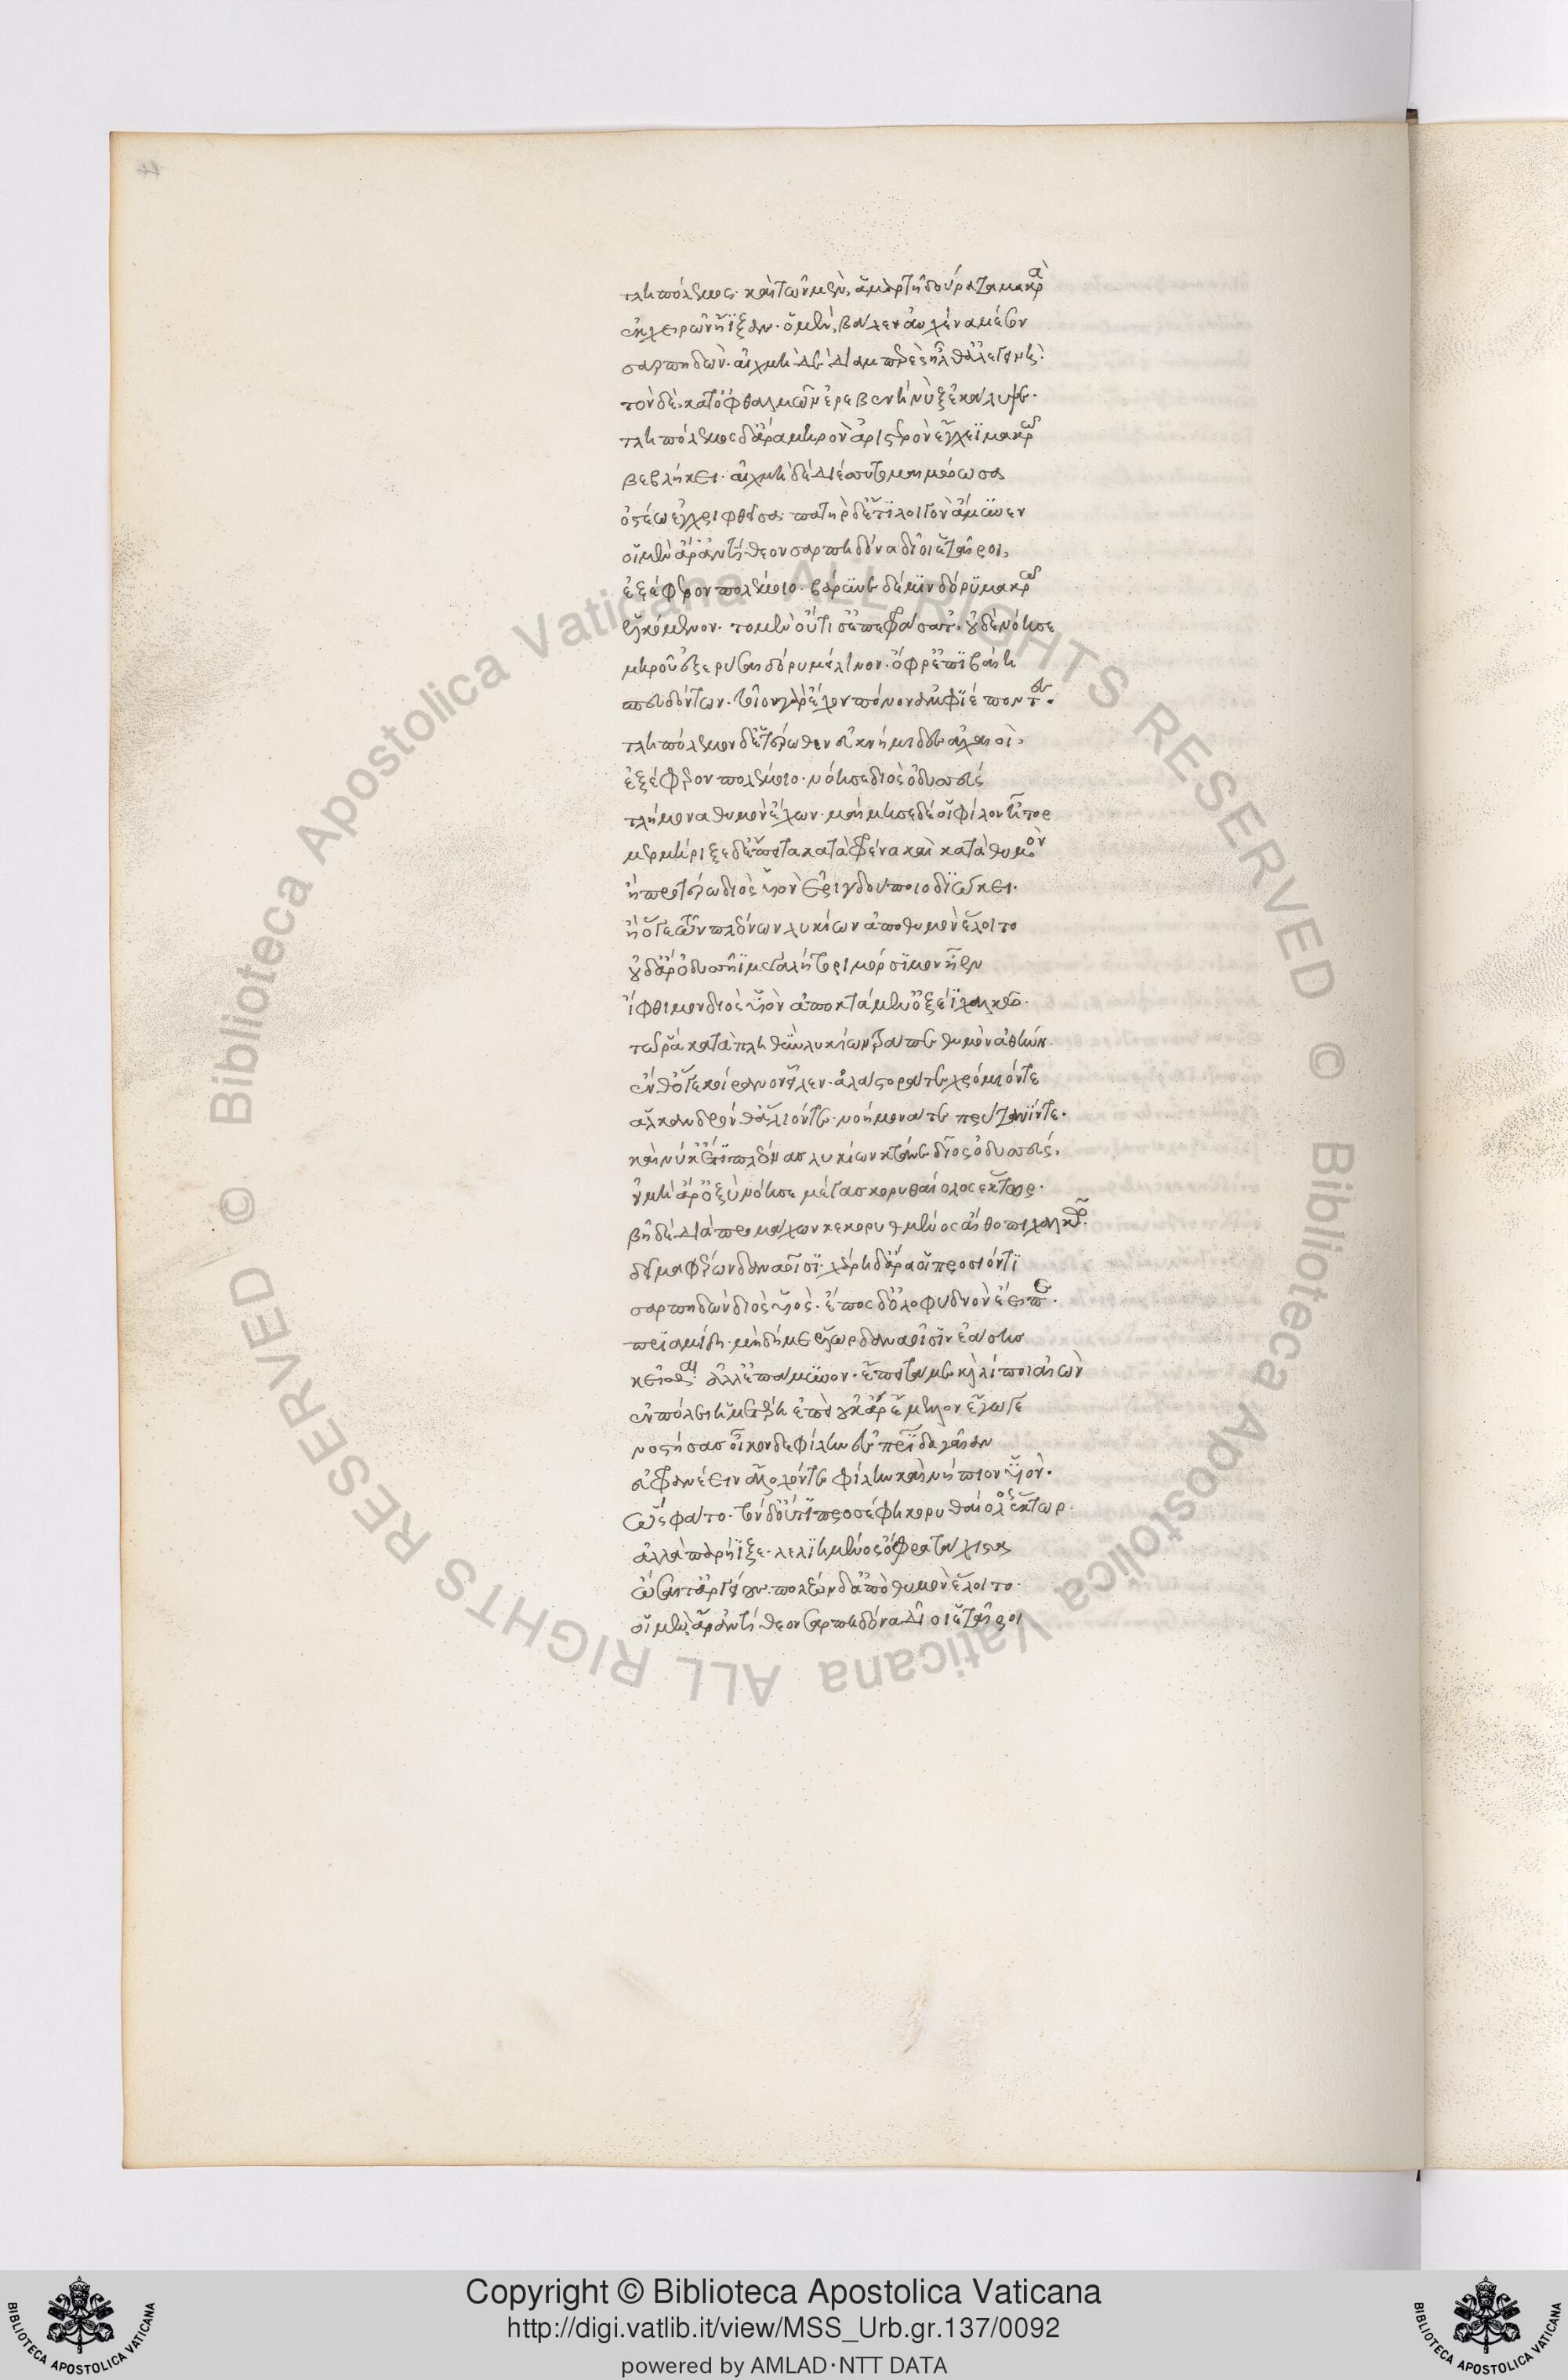 τληπόλεμος· καὶ τῶν μὲν, ἁμαρτῆ δούρατα μακρὰ
ἐκ χειρῶν ἤϊξαν· ὁ μὲν, βάλεν αὐχένα μέσον
σαρπηδών· αἰχμὴ δὲ διαμπερὲς ἦλθ ἀλεγεινή·
τὸν δὲ, κατ ὀφθαλμῶν ἐρεβεννὴ νὺξ ἐκάλυψε·
τληπόλεμος δ ἄρα μηρὸν ἀριστερὸν ἔγχεϊ μακρῶ
βεβλήκει· αἰχμὴ δὲ διέσυτο μαιμώωσα
ὀστέω ἐγχριφθεῖσα· πατὴρ δ ἔτι λοιγὸν ἄμυνεν
οἱ μὲν ἄρ ἀντίθεον σαρπηδόνα δῖοι ἑταῖροι,
ἐξέφερον πολέμοιο· βάρυνε δέ μιν δόρυ μακρὸν
ἑλκόμενον· τὸ μὲν οὔτις ἐπεφράσατ. οὐδὲ νόησε
μηροῦ ἐξερύσαι δόρυ μείλινον· ὄφρ ἐπιβαίη
σπευδόντων· τοῖον γὰρ ἔχον πόνον ἀμφιέποντες·
τληπόλεμον δ ἑτέρωθεν ἐϋκνήμιδες ἀχαιοὶ,
ἐξέφερον πολέμοιο· νόησε δὲ δῖος ὀδυσσεὺς
τλήμονα θυμὸν ἔχων· μαίμησε δέ οἱ φίλον ἦτορ
μερμήριξε δ ἔπειτα κατὰ φρένα καὶ κατὰ θυμὸν
ἢ προτέρω διὸς υἱὸν ἐριγδούποιο διώκει·
ἢ ὅγε τῶν πλεόνων λυκίων ἀπὸ θυμὸν ἕλοιτο
οὐδ ἄρ ὀδυσσῆϊ μεγαλήτορι μόρσιμον ἦεν
ἴφθιμον διὸς υἱὸν ἀποκτάμεν ὀξέϊ χαλκῶ·
τῶ ῥα κατὰ πληθὺν λυκίων τράπε θυμὸν ἀθήνη.
ἔνθ ὅγε κοίρανον εἷλεν· ἀλάστορά τε χρομίον τε
ἄλκανδρόν θ ἅλιόν τε· νοήμονά τε πρύτανίν τε.
καί νύ κ ἔτι πλέονας λυκίων κτάνε δῖος ὀδυσσεύς,
εἰ μὴ ἄρ ὀξὺ νόησε μέγας κορυθαίολος ἕκτωρ.
βῆ δὲ διὰ προμάχων κεκορυθμένος αἴθοπι χαλκῶ·
δεῖμα φέρων δαναοῖσι· χάρη δ ἄρα οἱ προσιόντι
σαρπηδὼν διὸς υἱὸς· ἔπος δ ὀλοφυδνὸν ἔειπε·
πριαμίδη· μὴ δή με ἕλωρ δαναοῖσιν ἐάσης
κεῖσθαι· ἀλλ ἐπάμυνον· ἔπειτά με καὶ λίποι αἰὼν
ἐν πόλει ὑμετέρη ἐπεὶ οὐκ ἄρ ἔμελλον ἔγωγε
νοστήσας οἶκον δὲ φίλην ἐς πατρίδα γαῖαν
εὐφρανέειν ἄλοχόν τε φίλην καὶ νήπιον υἱὸν.
ὣς φάτο· τὸν δ οὔτι προσέφη κορυθαίολος ἕκτωρ.
ἀλλὰ παρήϊξε· λελιημένος ὄφρα τάχιστα
ὤσαιτ ἀργείους· πολέων δ ἀπὸ θυμὸν ἕλοιτο·
οἱ μὲν ἄρ ἀντίθεον σαρπηδόνα δῖοι ἑταῖροι
Copyright © Biblioteca Apostolica Vaticana
http://digi.vatlib.it/view/MSS_Urb.gr.137/0092
powered by AMLAD·NTT DATA